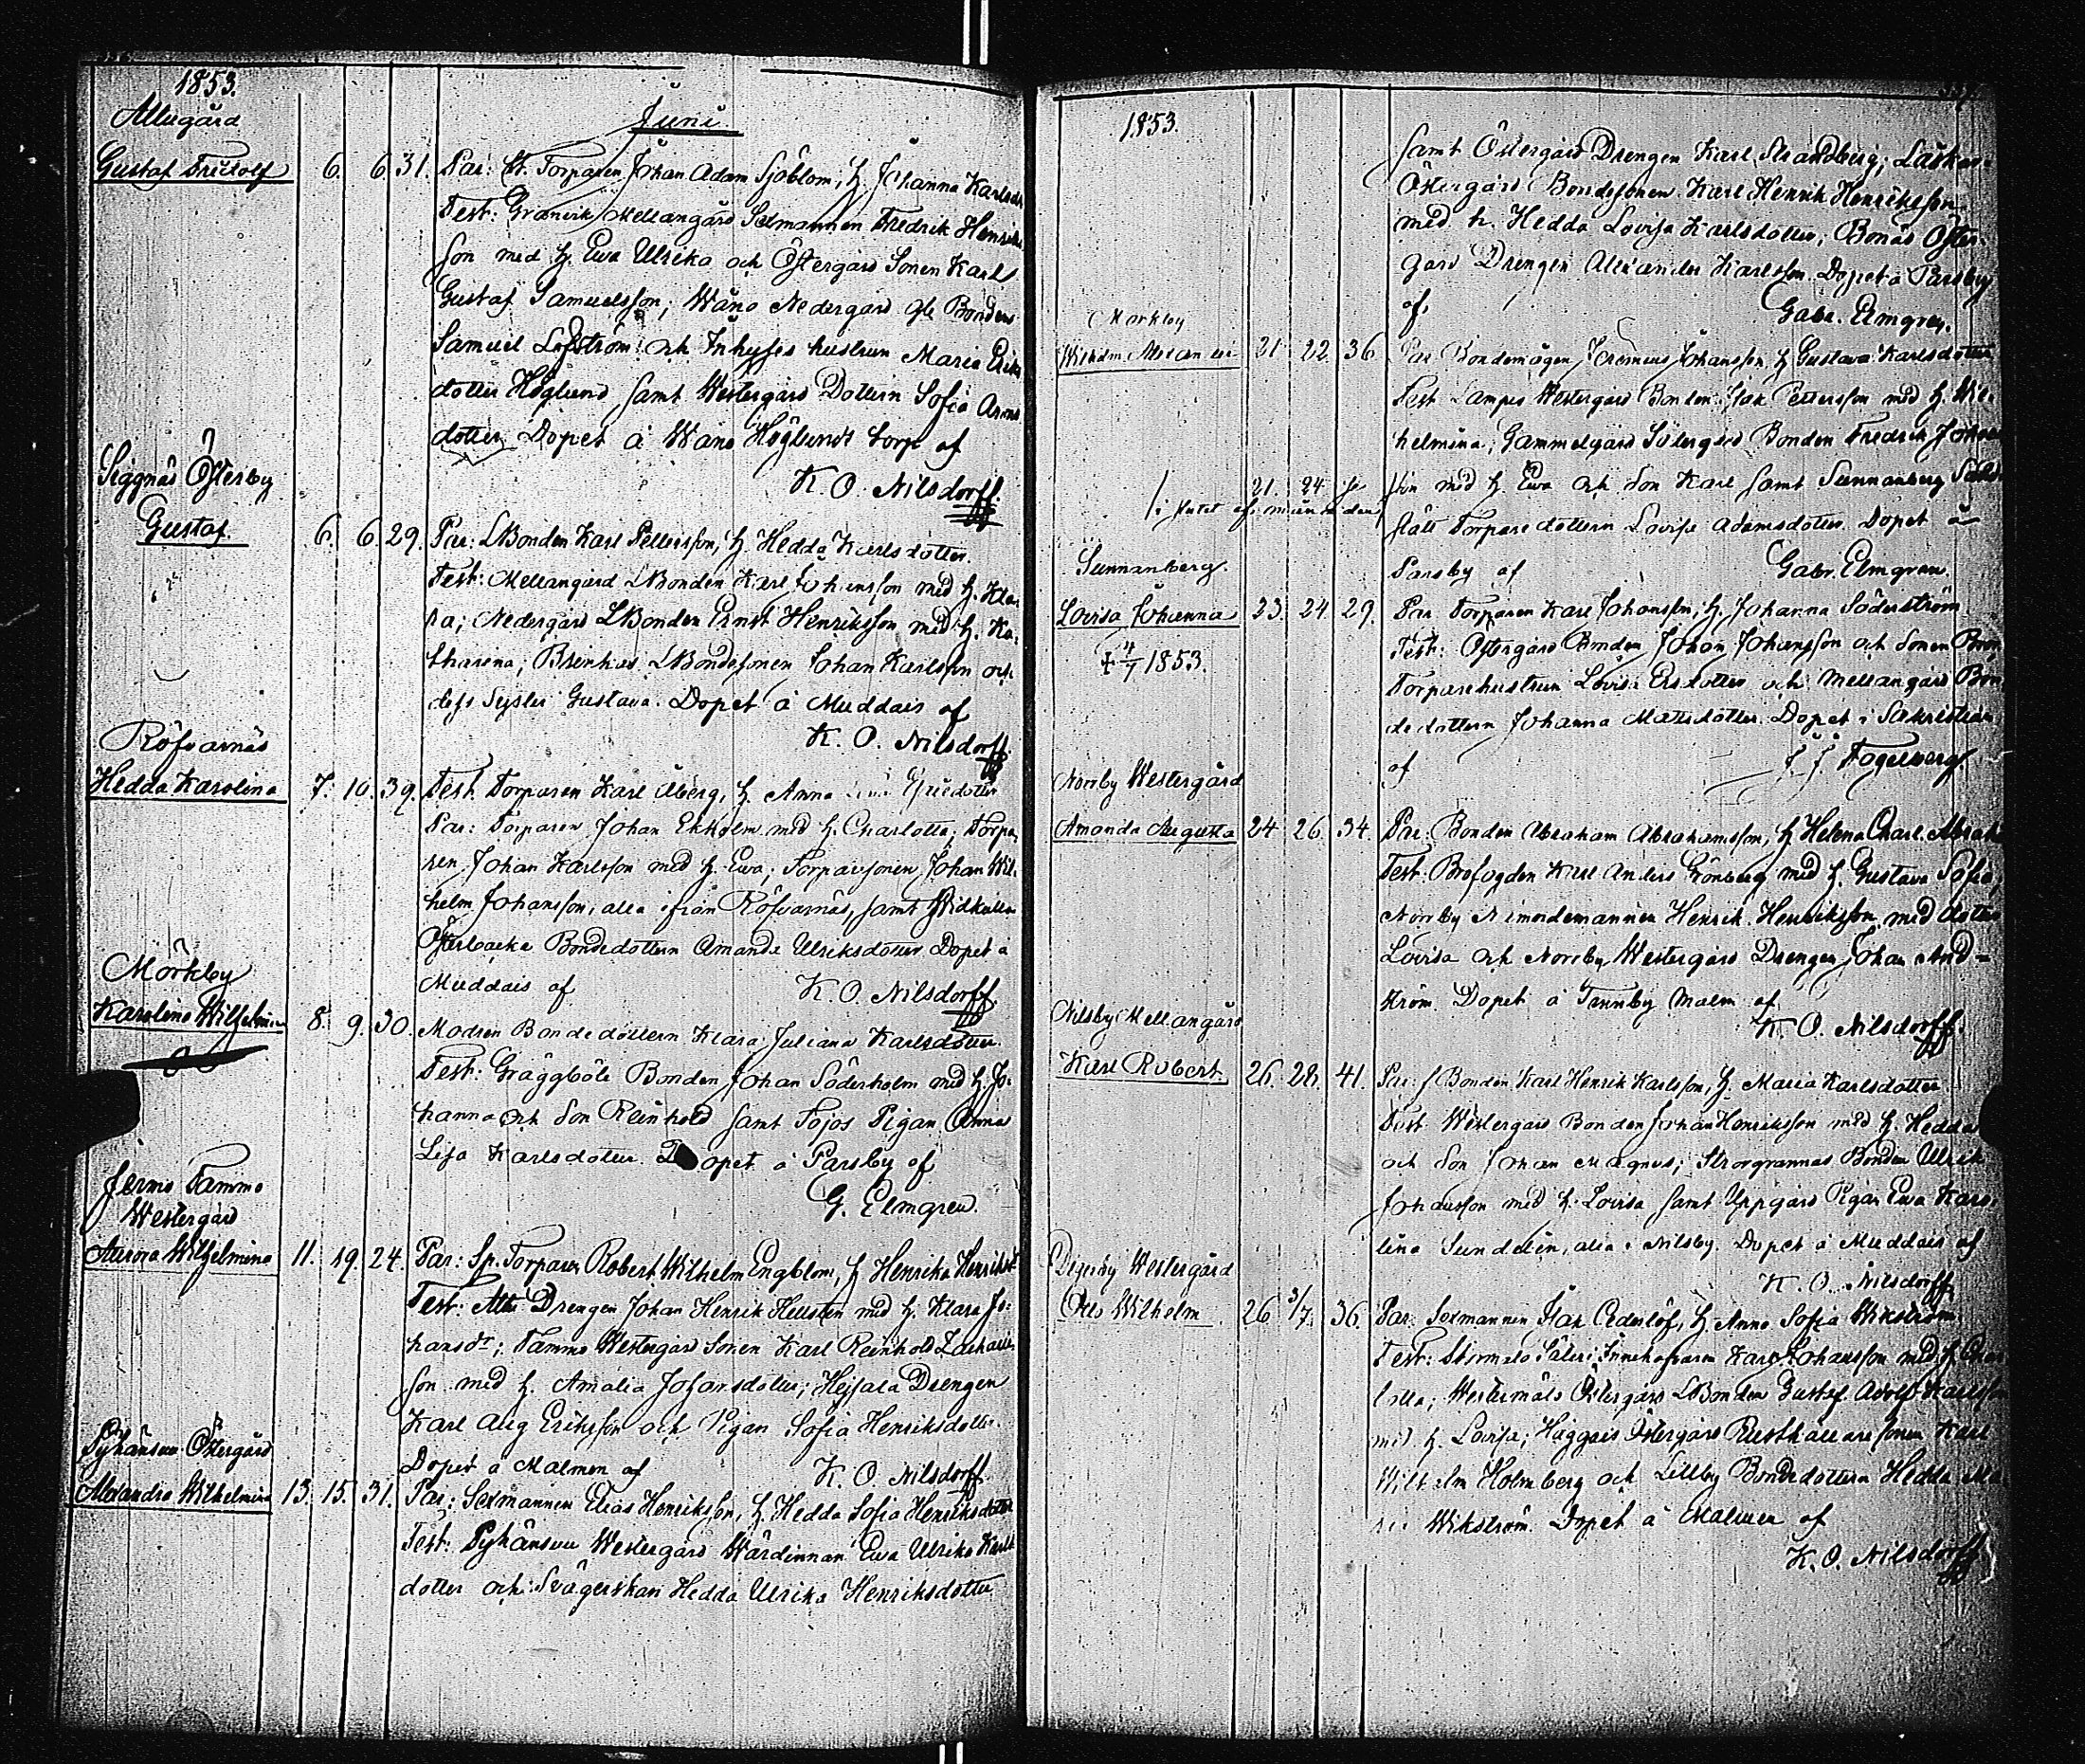 1853.
Allugård
Juni
Gustaf Fridolf 6. 6. 31. Par: Torparen Johan Adam Sjöblom, h. Johanna Karlsdr
Test: Granvik Mellangård Sexmannen Fredrik Henriks
son med h. Ewa Ulrika och Östergård Sonen Karl
Gustaf Samuelsson; Wånå Nedergård gle Bonden
Samuel Löfström och Inhyses hustrun Maria Eriks
dotter Höglund samt Westergård Dottern Sofia
dotter Dopet å Wånå Höglunds torp af
K. O. Nilsdorff.
Siggnäs Österby
Gustaf. 6. 6. 29. Par: LBonden Karl Pettersson, h. Hedda Karlsdotter.
Test: Mellangård LBonden Karl Johansson med h. Kla
ra; Nedergård LBonden Ernst Henriksson med h. Ka
tharina; LBondesonen Johan Karlsson och
dess Syster Gustava. Dopet å Muddais af
K. O. Nilsdorff.
Röfvarnäs
Hedda Karolina 7. 10. 39. Test. Torparen Karl Åberg, h. Anna
Par: Torparen Johan Ekholm med h. Charlotta; Torpa
ren Johan Karlsson med h. Ewa; Torparsonen Johan Wil
helm Johansson, alla ifrån Röfvarnäs, samt
Österbacka Bondedottern Amanda Ulriksdotter Dopet å
Muddais af K. O. Nilsdorff.
Mörkby
Karolina Wilhelmina 8. 9. 30. Modren Bondedottern Klara Juliana Karlsdotter.
Test: Gräggböle Bonden Johan Söderholm med h. Jo
hanna och Son Reinhold samt Sojos Pigan Anna
Lisa Karlsdotter. Dopet å Parsby af
G. Elmgren.
Jermo Tammo
Westergård
Aurora Wilhelmina 11. 19. 24. Par: Sp. Torparen Robert Wilhelm Engblom, h. Henrika Henriksdr
Test: Drengen Johan Henrik Hellsten med h. Klara Jo
hansdr; Tammo Westergård Sonen Karl Reinhold Zacharias
son med h. Amalia Johansdotter; Heisala Drengen
Karl Aug Eriksson och Pigan Sofia Henriksdotter.
Dopet å Malmen af K. O. Nilsdorff
Pyhänsuu Östergård
Alexandra Wilhelmina 13. 15. 31. Par: Sexmannen Elias Henriksson, h. Hedda Sofia Henriksdotter
Test: Pyhänsuu Westergård Wärdinnan Ewa Ulrika Karls
dotter och Svägerskan Hedda Ulrika Henriksdotter
1853.
samt Östergård Drengen Karl Strandberg;
Östergård Bondesonen Karl Henrik Henriksson
med h. Hedda Lovisa Karlsdotter; Bonäs Öster
gård Drengen Alexander Karlsson. Dopet å Parsby
af Gabr. Elmgren.
Mörkby
Wilhelm Alexander 21. 22. 36. Par Bondemågen Jeremias Johansson, h. Gustava Karlsdotter
Test Lampis Westergård Bonden Isak Pettersson med h. Wil
helmina; Gammelgård Södergård Bonden Fredrik Johans
son med h. Ewa och Son Karl samt Sunnanberg
Torparedottern Lovisa Adamsdotter. Dopet å
Parsby af Gabr. Elmgren.
21. 24.
Sunnanberg.
Lovisa Johanna 23. 24. 29. Par Torparen Karl Johansson, h. Johanna Söderström
Test: Östergård Bonden Johan Johansson och Sonen
Torparehustrun Lovisa Ersdotter och Mellangård Bon
dedottern Johanna Mattsdotter. Dopet i Sakristian
af Fogelberg.
+ 4/7 1853.
Norrby Westergård
Amanda Augusta 24. 26. 34. Par: Bonden Abraham Abrahamsson, h. Helena Charl.
Test: Brofogden Karl Anders Grönberg med h. Gustava Sofia;
Norrby Nämndemannen Henrik Henriksson med dotter
Lovisa och Norrby Westergård Drengen Johan And-
ström Dopet å Tennby Malm af
K. O. Nilsdorff.
Nilsby Mellangård
Karl Robert 26. 28. 41. Par: Bonden Karl Henrik Karlsson, h. Maria Karlsdotter
Test Westergård Bonden Johan Henriksson med h. Hedda
och Son Johan Magnus; Storgrannas Bonden Ulrik
Johansson med h. Lovisa samt Uppgård Pigan Ewa Karo
lina Sundelin, alla i Nilsby. Dopet å Muddais af
K. O. Nilsdorff.
Degerby Westergård
Otto Wilhelm 26 3/7. 36. Par: Sexmannen Isak Cederlöf, h. Anna Sofia Wikström
Test: Säteri Innehafvaren Karl Johansson med h. Char
lotta; Westermäls Östergård LBonden Gustaf Adolf Karlsson
med h. Lovisa; Haggais Östergård Rusthållaresonen Karl
Wilhelm Holmberg och Lillby Bondedottern Hedda Ma
ria Wikström. Dopet å Malmen af
K. O. Nilsdorff